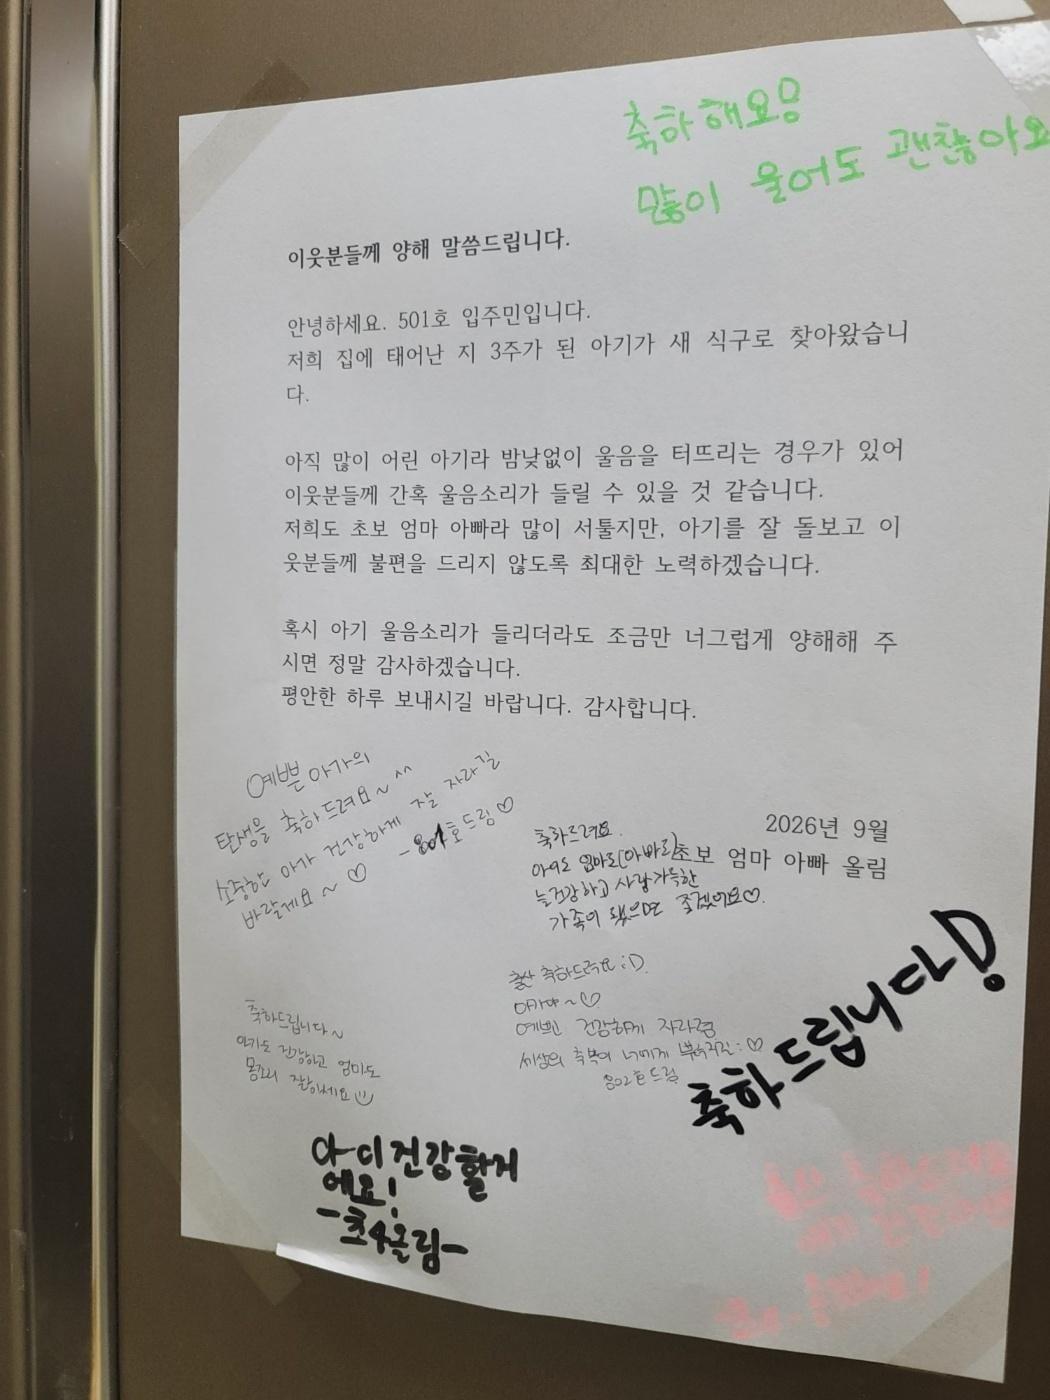 축하해요
많이 울어도 괜찮아요
이웃분들께 양해 말씀드립니다.
안녕하세요. 501호 입주민입니다.
저희 집에 태어난 지 3주가 된 아기가 새 식구로 찾아왔습니
다.
아직 많이 어린 아기라 밤낮없이 울음을 터뜨리는 경우가 있어
이웃분들께 간혹 울음소리가 들릴 수 있을 것 같습니다.
저희도 초보 엄마 아빠라 많이 서툴지만, 아기를 잘 돌보고 이
웃분들께 불편을 드리지 않도록 최대한 노력하겠습니다.
혹시 아기 울음소리가 들리더라도 조금만 너그럽게 양해해 주
시면 정말 감사하겠습니다.
평안한 하루 보내시길 바랍니다. 감사합니다.
예쁜 아가의
탄생을 축하드려요~^^
소중한 아가 건강하게 잘 자라길
바랄게요~♡
-801호드림♡
2026년 9월
초보 엄마 아빠 올림
축하드려요.
아이도 엄마도(아빠도)
늘건강하고 사랑가득한
가족이 됐으면 좋겠어요♡.
출산 축하드려요 :D
아가야~♡
예쁘고 건강하게 자라렴
세상의 축복이 너에게 :♡
802호드림
축하드립니다~
아가도 건강하고 엄마도
몸조리 잘하세요
축하드립니다!
아이건강할거
에요!
-초4올림-